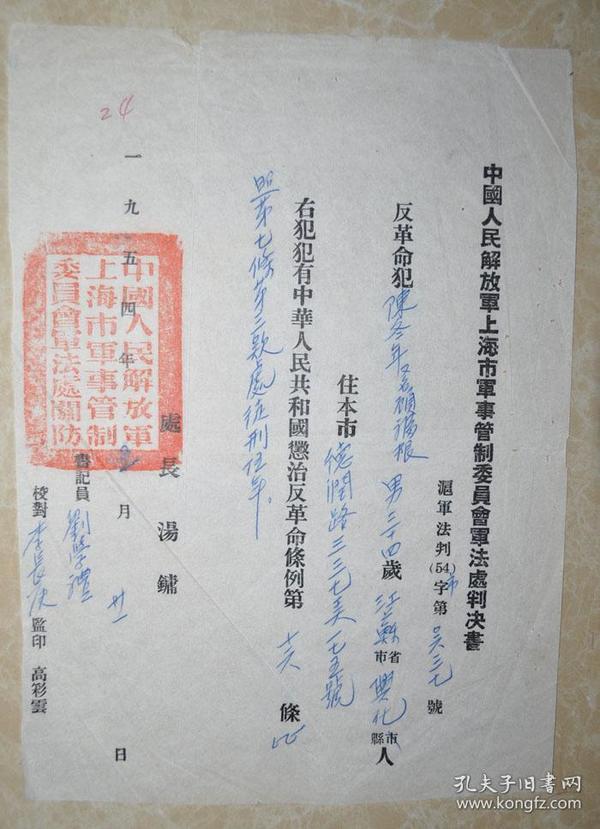 中國人民解放軍上海市軍事管制委員會軍法處判決書
滬軍法判(54)市字第 吳三七 號
反革命犯 陳冬年又名顧福根 男 三十四歲 江蘇省市 興化市縣人
住本市 德潤路三三七弄一七五號
右犯犯有中華人民共和國懲治反革命條例第 十六 條
照第七條第三款處徒刑伍年。
處長 湯鏞
書記員 劉學禮
校對 李長庚 監印 高彩雲
一九五四年 2 月 廿一 日
中國人民解放軍
上海市軍事管制
委員會軍法處關防
24
孔夫子旧书网
www.kongfz.com